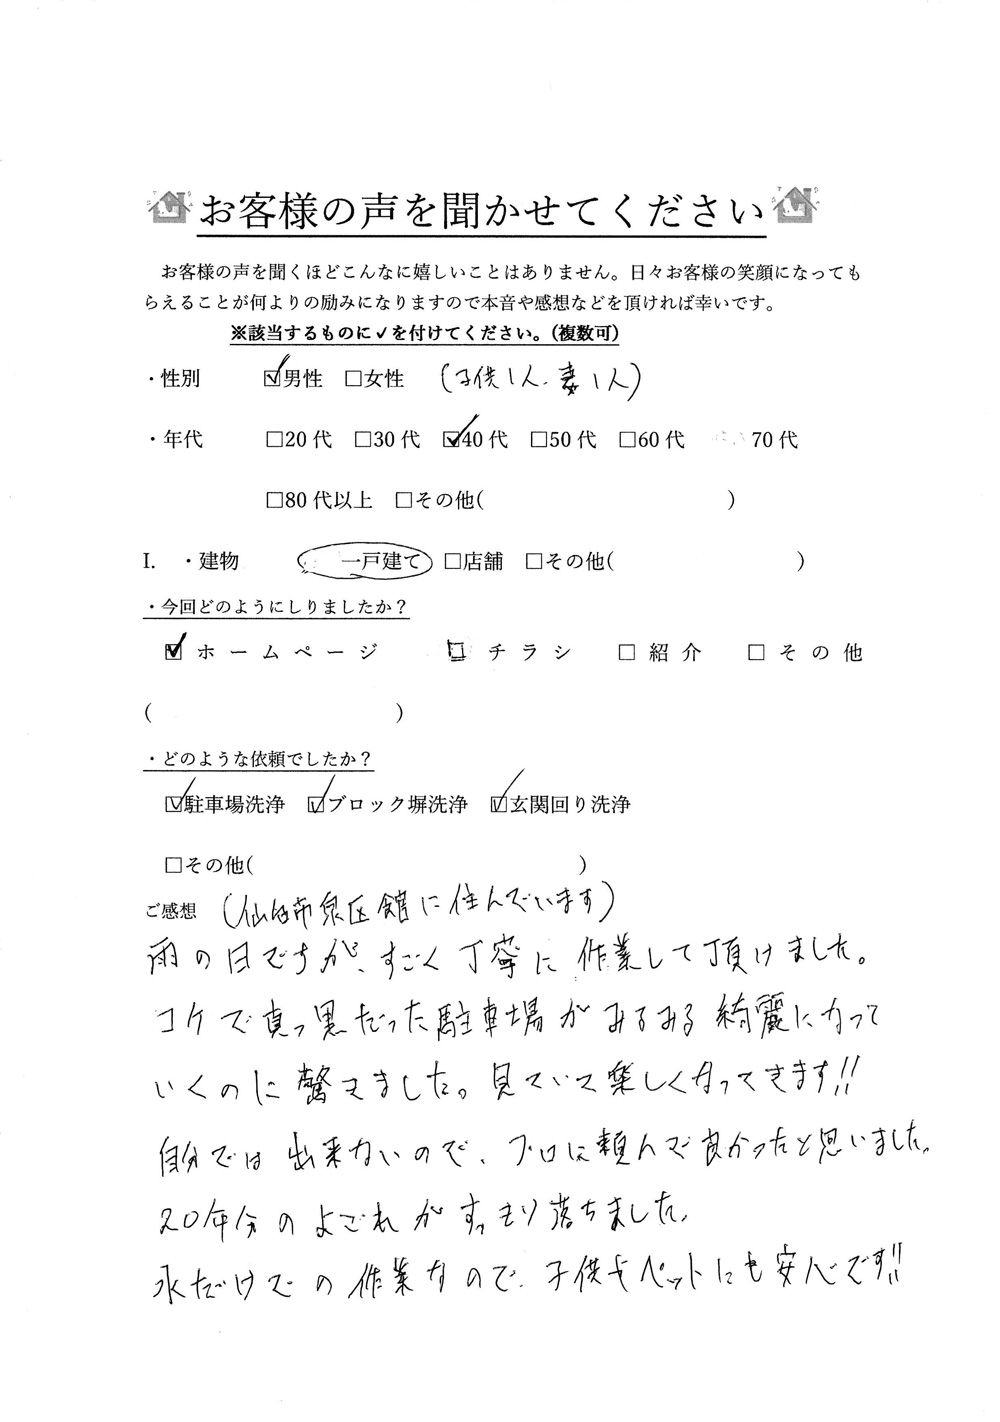 お客様の声を聞かせてください
お客様の声を聞くほどこんなに嬉しいことはありません。日々お客様の笑顔になっても
らえることが何よりの励みになりますので本音や感想などを頂ければ幸いです。
※該当するものに✓を付けてください。(複数可)
・性別 ☑男性 □女性 (子供1人、妻1人)
・年代 □20代 □30代 ☑40代 □50代 □60代 70代
□80代以上 □その他( )
I. ・建物 一戸建て □店舗 □その他( )
・今回どのようにしりましたか？
☑ホームページ □チラシ □紹介 □その他
( )
・どのような依頼でしたか？
☑駐車場洗浄 ☑ブロック塀洗浄 ☑玄関回り洗浄
□その他( )
ご感想 (仙台市泉区館に住んでいます)
雨の日ですが、すごく丁寧に作業して頂けました。
コケで真っ黒だった駐車場がみるみる綺麗になって
いくのに驚きました。見ていて楽しくなってきます!!
自分では出来ないので、プロに頼んで良かったと思いました。
20年分のよごれがすっきり落ちました。
水だけでの作業なので、子供やペットにも安心です!!